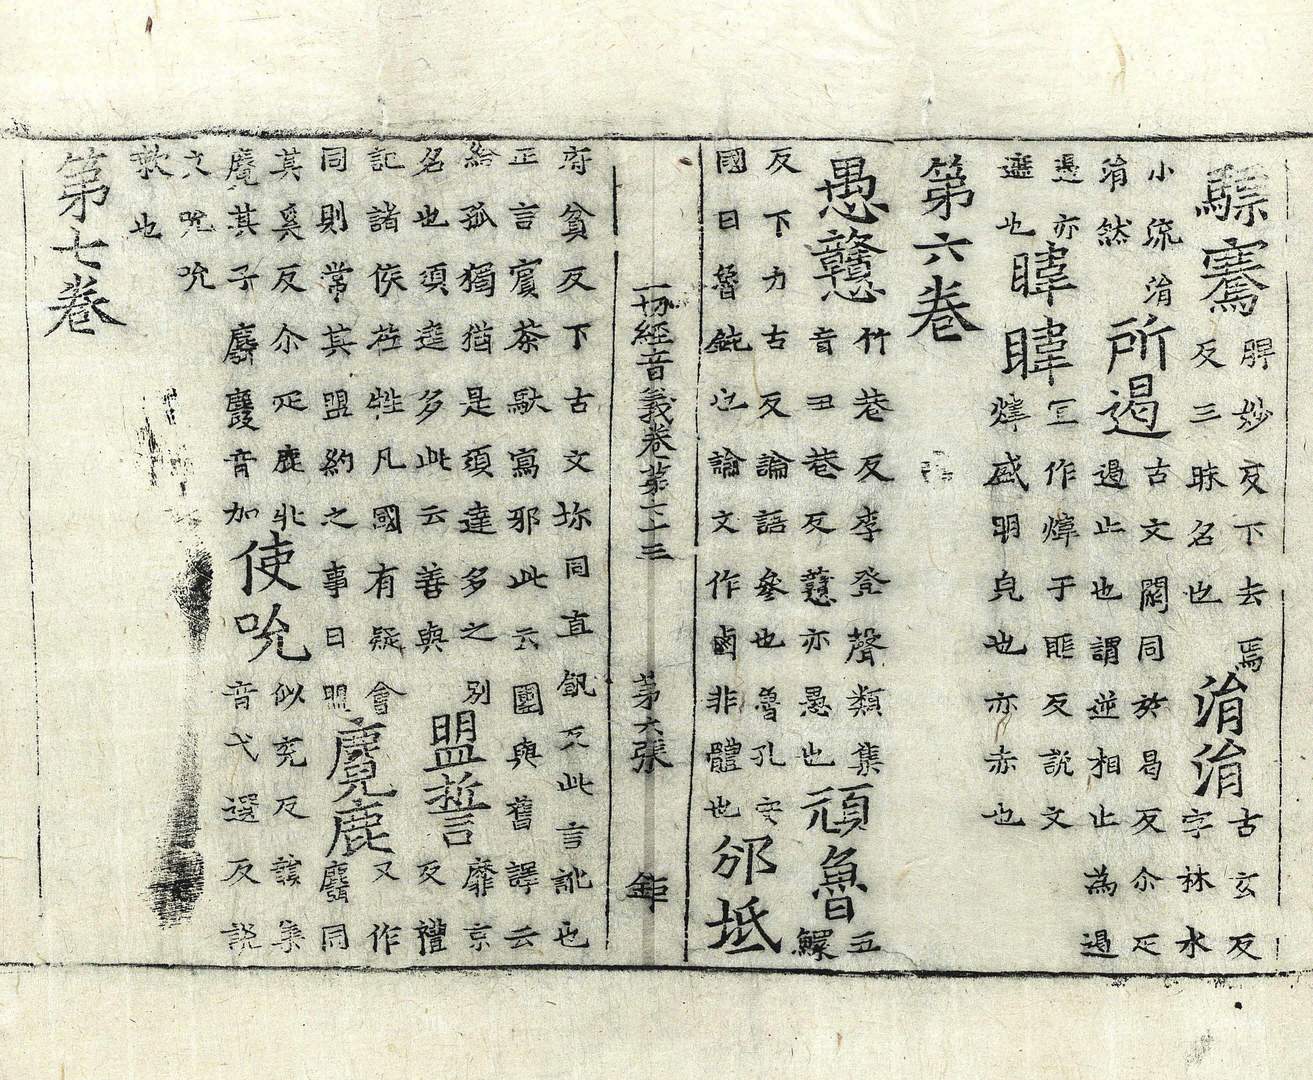 驃騫脾妙反下去焉反三昧名也涓涓古玄反字林水
小流涓涓然所遏古文閼同於曷反尒疋遏止也謂逆相止為遏
遏亦遮也暐暐冝作煒于匪反說文煒盛明皃也亦赤也
第六卷
愚戇竹巷反李登聲類集音丑巷反戇亦愚也頑魯五鰥
反下力古反論語參也魯孔安國曰魯鈍也論文作鹵非體也邠坻
一切經音義卷第七十三 第六張 鉅
府貧反下古文坁同直飢反此言訛也正言賓荼馱寫邪此云團與舊譯云
給孤獨猶是須達多之別名也須達多此云善與盟誓靡京反禮
記諸侯莅牲凡國有疑會同則常其盟約之事曰盟麑鹿又作麛同
莫奚反尒疋鹿牝麑其子麛麌音加使吮似兖反該集音弋選反說
文吮吮欶也
第七卷